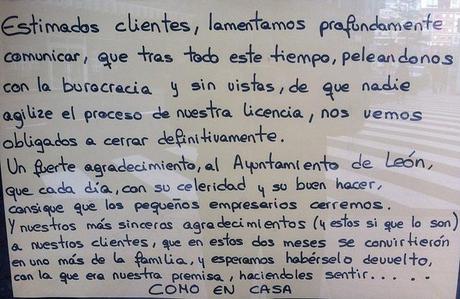 Estimados clientes, lamentamos profundamente
comunicar, que tras todo este tiempo, peleandonos
con la burocracia y sin vistas, de que nadie
agilize el proceso de nuestra licencia, nos vemos
obligados a cerrar definitivamente.
Un fuerte agradecimiento, al Ayuntamiento de León,
que cada día, con su celeridad y su buen hacer,
consigue que los pequeños empresarios cerremos.
Y nuestros más sinceros agradecimientos (y estos si que lo son)
a nuestros clientes, que en estos dos meses se convirtierón
en uno más de la familia, y esperamos habérselo devuelto,
con la que era nuestra premisa, haciendoles sentir.....
COMO EN CASA